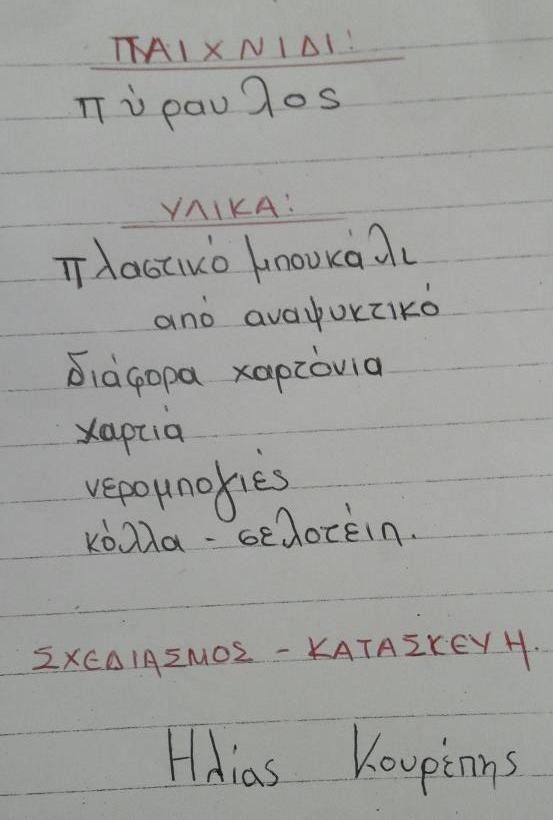 ΠΑΙΧΝΙΔΙ:
πύραυλος
ΥΛΙΚΑ:
πλαστικό μπουκάλι
από αναψυκτικό
διάφορα χαρτόνια
χαρτιά
νερομπογιές
κόλλα - σελοτέιπ.
ΣΧΕΔΙΑΣΜΟΣ - ΚΑΤΑΣΚΕΥΗ.
Ηλίας Κουρέπης